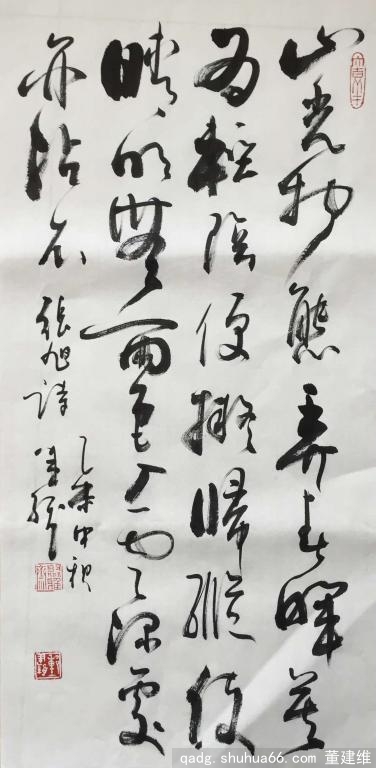 山光物態弄春暉莫
为輕陰便擬歸縱使
晴明無雨色入云深處
亦沾衣 張旭詩
乙未中秋
qadg.shuhua66.com 董建维